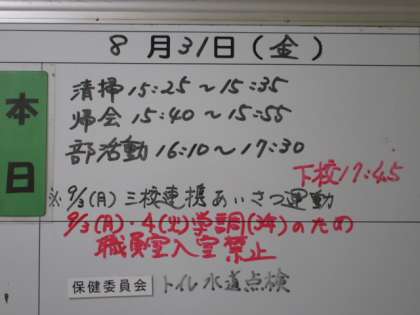 8月31日(金)
本日
清掃 15:25～15:35
帰会 15:40～15:55
部活動 16:10～17:30
下校17:45
※9/3(月) 三校連携あいさつ運動
9/3(月)・4(火)学調(3年)のため
職員室入室禁止
保健委員会 トイレ水道点検